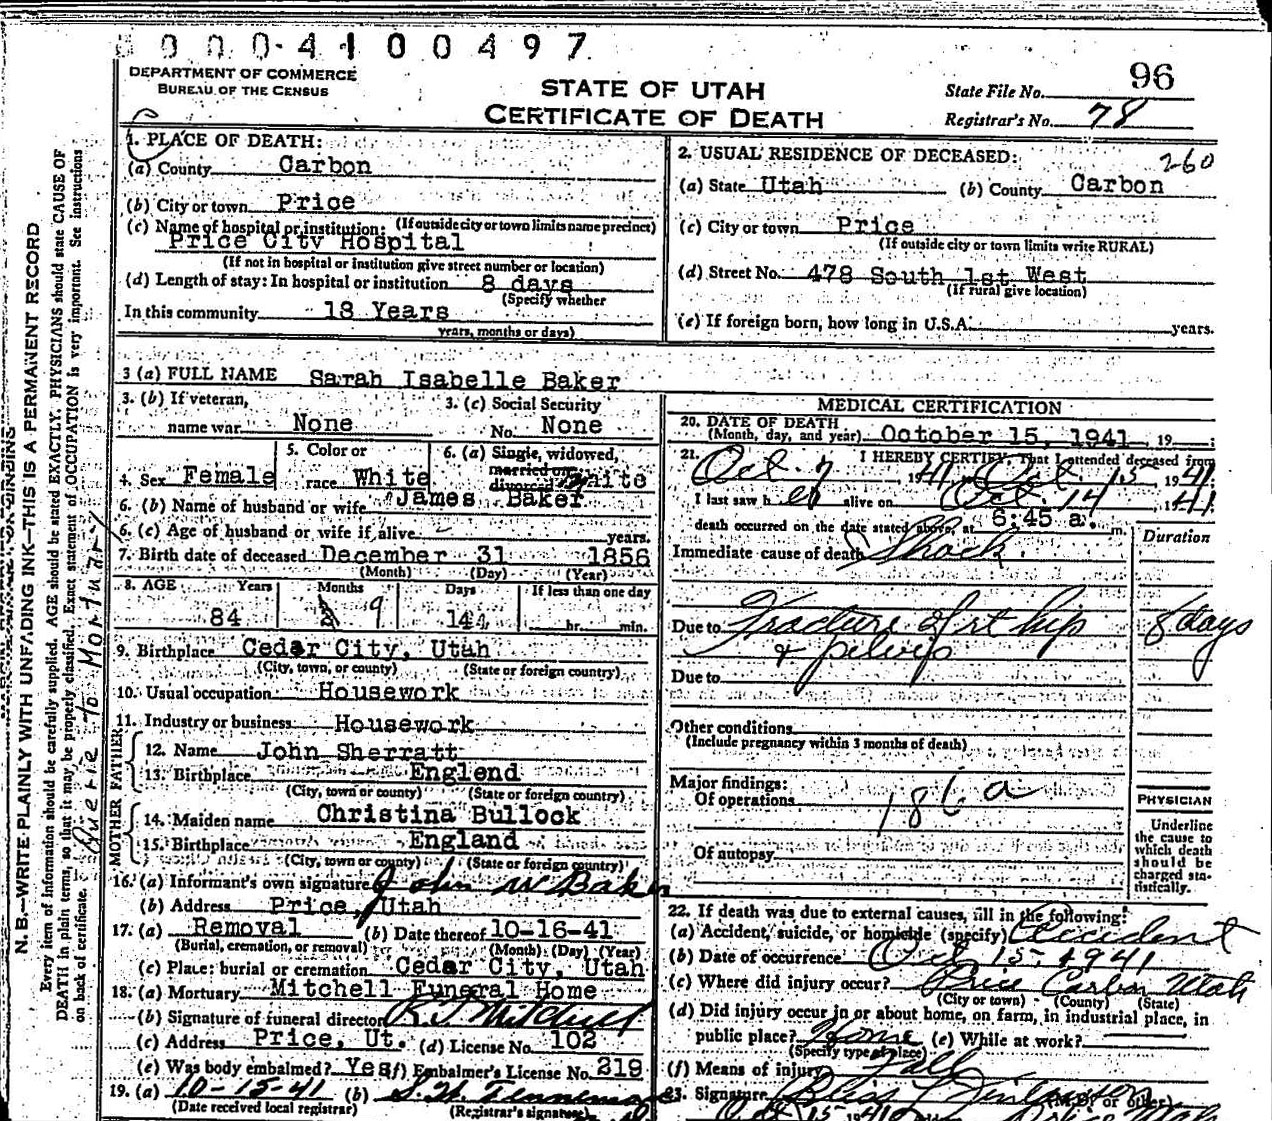 000-4100497
DEPARTMENT OF COMMERCE
BUREAU OF THE CENSUS
STATE OF UTAH
CERTIFICATE OF DEATH
96
State File No.
Registrar's No. 78
260
N. B.—WRITE PLAINLY WITH UNFADING INK—THIS IS A PERMANENT RECORD
Every item of information should be carefully supplied. AGE should be stated EXACTLY. PHYSICIANS should state CAUSE OF
DEATH in plain terms, so that it may be properly classified. Exact statement of OCCUPATION is very important. See instructions
on back of certificate.
Querie to Mortuary
1. PLACE OF DEATH:
(a) County Carbon
(b) City or town Price
(If outside city or town limits name precinct)
(c) Name of hospital or institution:
Price City Hospital
(If not in hospital or institution give street number or location)
(d) Length of stay: In hospital or institution 8 days
(Specify whether
In this community 18 Years
years, months or days)
2. USUAL RESIDENCE OF DECEASED:
(a) State Utah (b) County Carbon
(c) City or town Price
(If outside city or town limits write RURAL)
(d) Street No. 478 South 1st West
(If rural give location)
(e) If foreign born, how long in U.S.A. years.
3 (a) FULL NAME Sarah Isabelle Baker
3. (b) If veteran,
name war None
3. (c) Social Security
No. None
4. Sex Female
5. Color or
race White
6. (a) Single, widowed,
married or
divorced White
6. (b) Name of husband or wife James Baker
6. (c) Age of husband or wife if alive years.
7. Birth date of deceased December 31 1856
(Month) (Day) (Year)
8. AGE Years Months Days If less than one day
84 9 14 hr. min.
9. Birthplace Cedar City, Utah
(City, town, or county) (State or foreign country)
10. Usual occupation Housework
11. Industry or business Housework
FATHER
12. Name John Sherratt
13. Birthplace Englend
(City, town or county) (State or foreign country)
MOTHER
14. Maiden name Christina Bullock
15. Birthplace England
(City, town or county) (State or foreign country)
16. (a) Informant's own signature John W Baker
(b) Address Price, Utah
17. (a) Removal (b) Date thereof 10-16-41
(Burial, cremation, or removal) (Month) (Day) (Year)
(c) Place: burial or cremation Cedar City, Utah
18. (a) Mortuary Mitchell Funeral Home
(b) Signature of funeral director R. J. Mitchell
(c) Address Price, Ut. (d) License No. 102
(e) Was body embalmed? Yes (f) Embalmer's License No. 219
19. (a) 10-15-41 (b)
(Date received local registrar) (Registrar's signature)
MEDICAL CERTIFICATION
20. DATE OF DEATH
(Month, day, and year) October 15, 1941, 19 ;
21. I HEREBY CERTIFY, That I attended deceased from
Oct. 7 1941, Oct. 15 1941
I last saw her alive on Oct. 14 1941
death occurred on the date stated above, at 6:45 a. m.
Duration
Immediate cause of death Shock.
Due to Fracture of rt hip 8 days
& pelvis
Due to
Other conditions
(Include pregnancy within 3 months of death)
Major findings:
Of operations
186a
Of autopsy
PHYSICIAN
Underline
the cause to
which death
should be
charged sta-
tistically.
22. If death was due to external causes, fill in the following:
(a) Accident, suicide, or homicide (specify) Accident
(b) Date of occurrence Oct 15, 1941
(c) Where did injury occur? Price Carbon Utah
(City or town) (County) (State)
(d) Did injury occur in or about home, on farm, in industrial place, in
public place? Home (e) While at work?
(Specify type of place)
(f) Means of injury Fall
23. Signature Bliss L Finlayson
(M.D. or other)